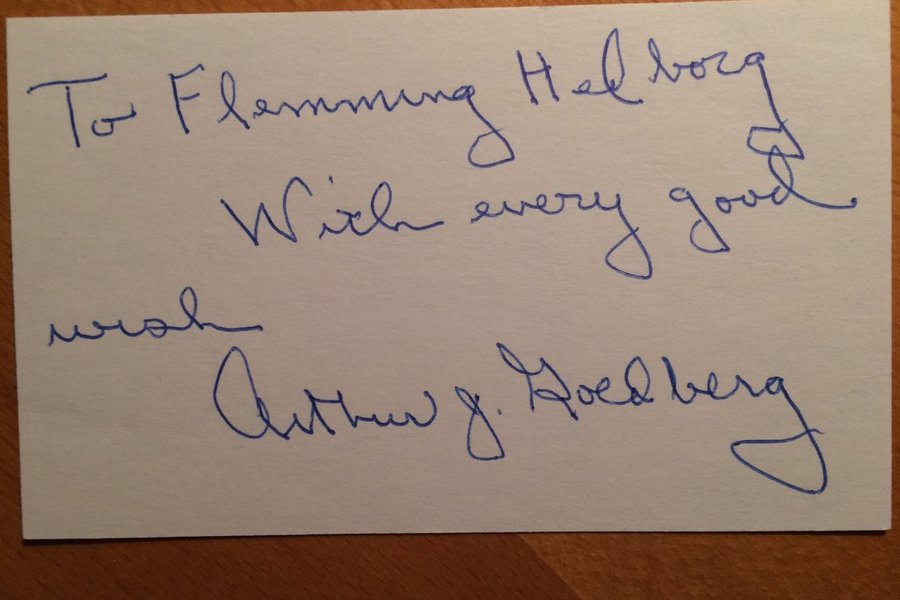 To Flemming Helborg
With every good
wish
Arthur J. Goldberg